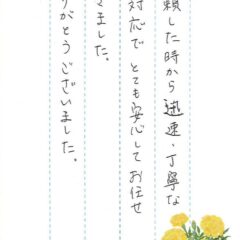 頼した時から 迅速・丁寧な
対応で とても安心して お任せ
きました。
りがとうございました。